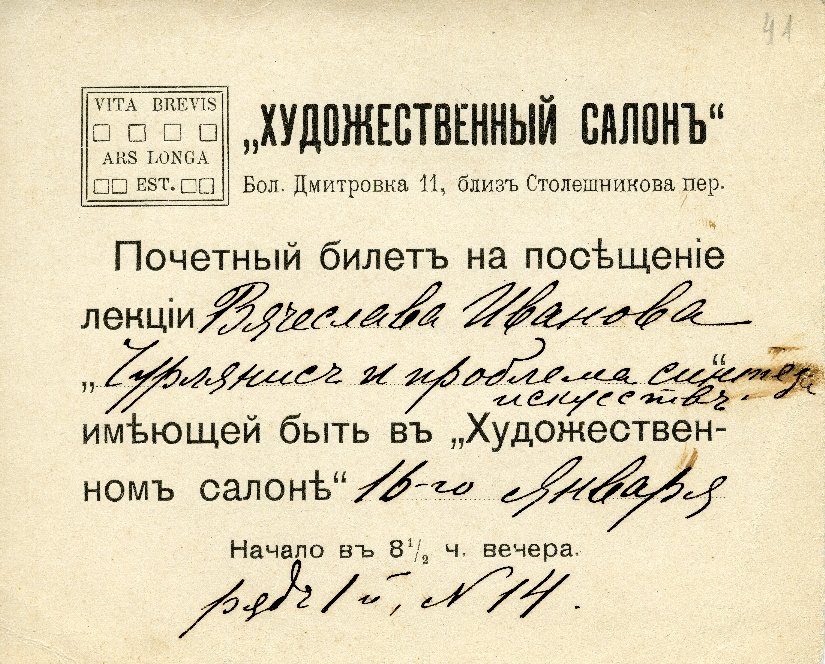 41
VITA BREVIS
ARS LONGA
EST.
„ХУДОЖЕСТВЕННЫЙ САЛОНЪ“
Бол. Дмитровка 11, близъ Столешникова пер.
Почетный билетъ на посѣщеніе
лекціи Вячеслава Иванова
„Чурлянисъ и проблема синтеза
искусствъ“
имѣющей быть въ „Художествен-
номъ салонѣ“ 16-го Января
Начало въ 8½ ч. вечера.
рядъ 1й, N 14.